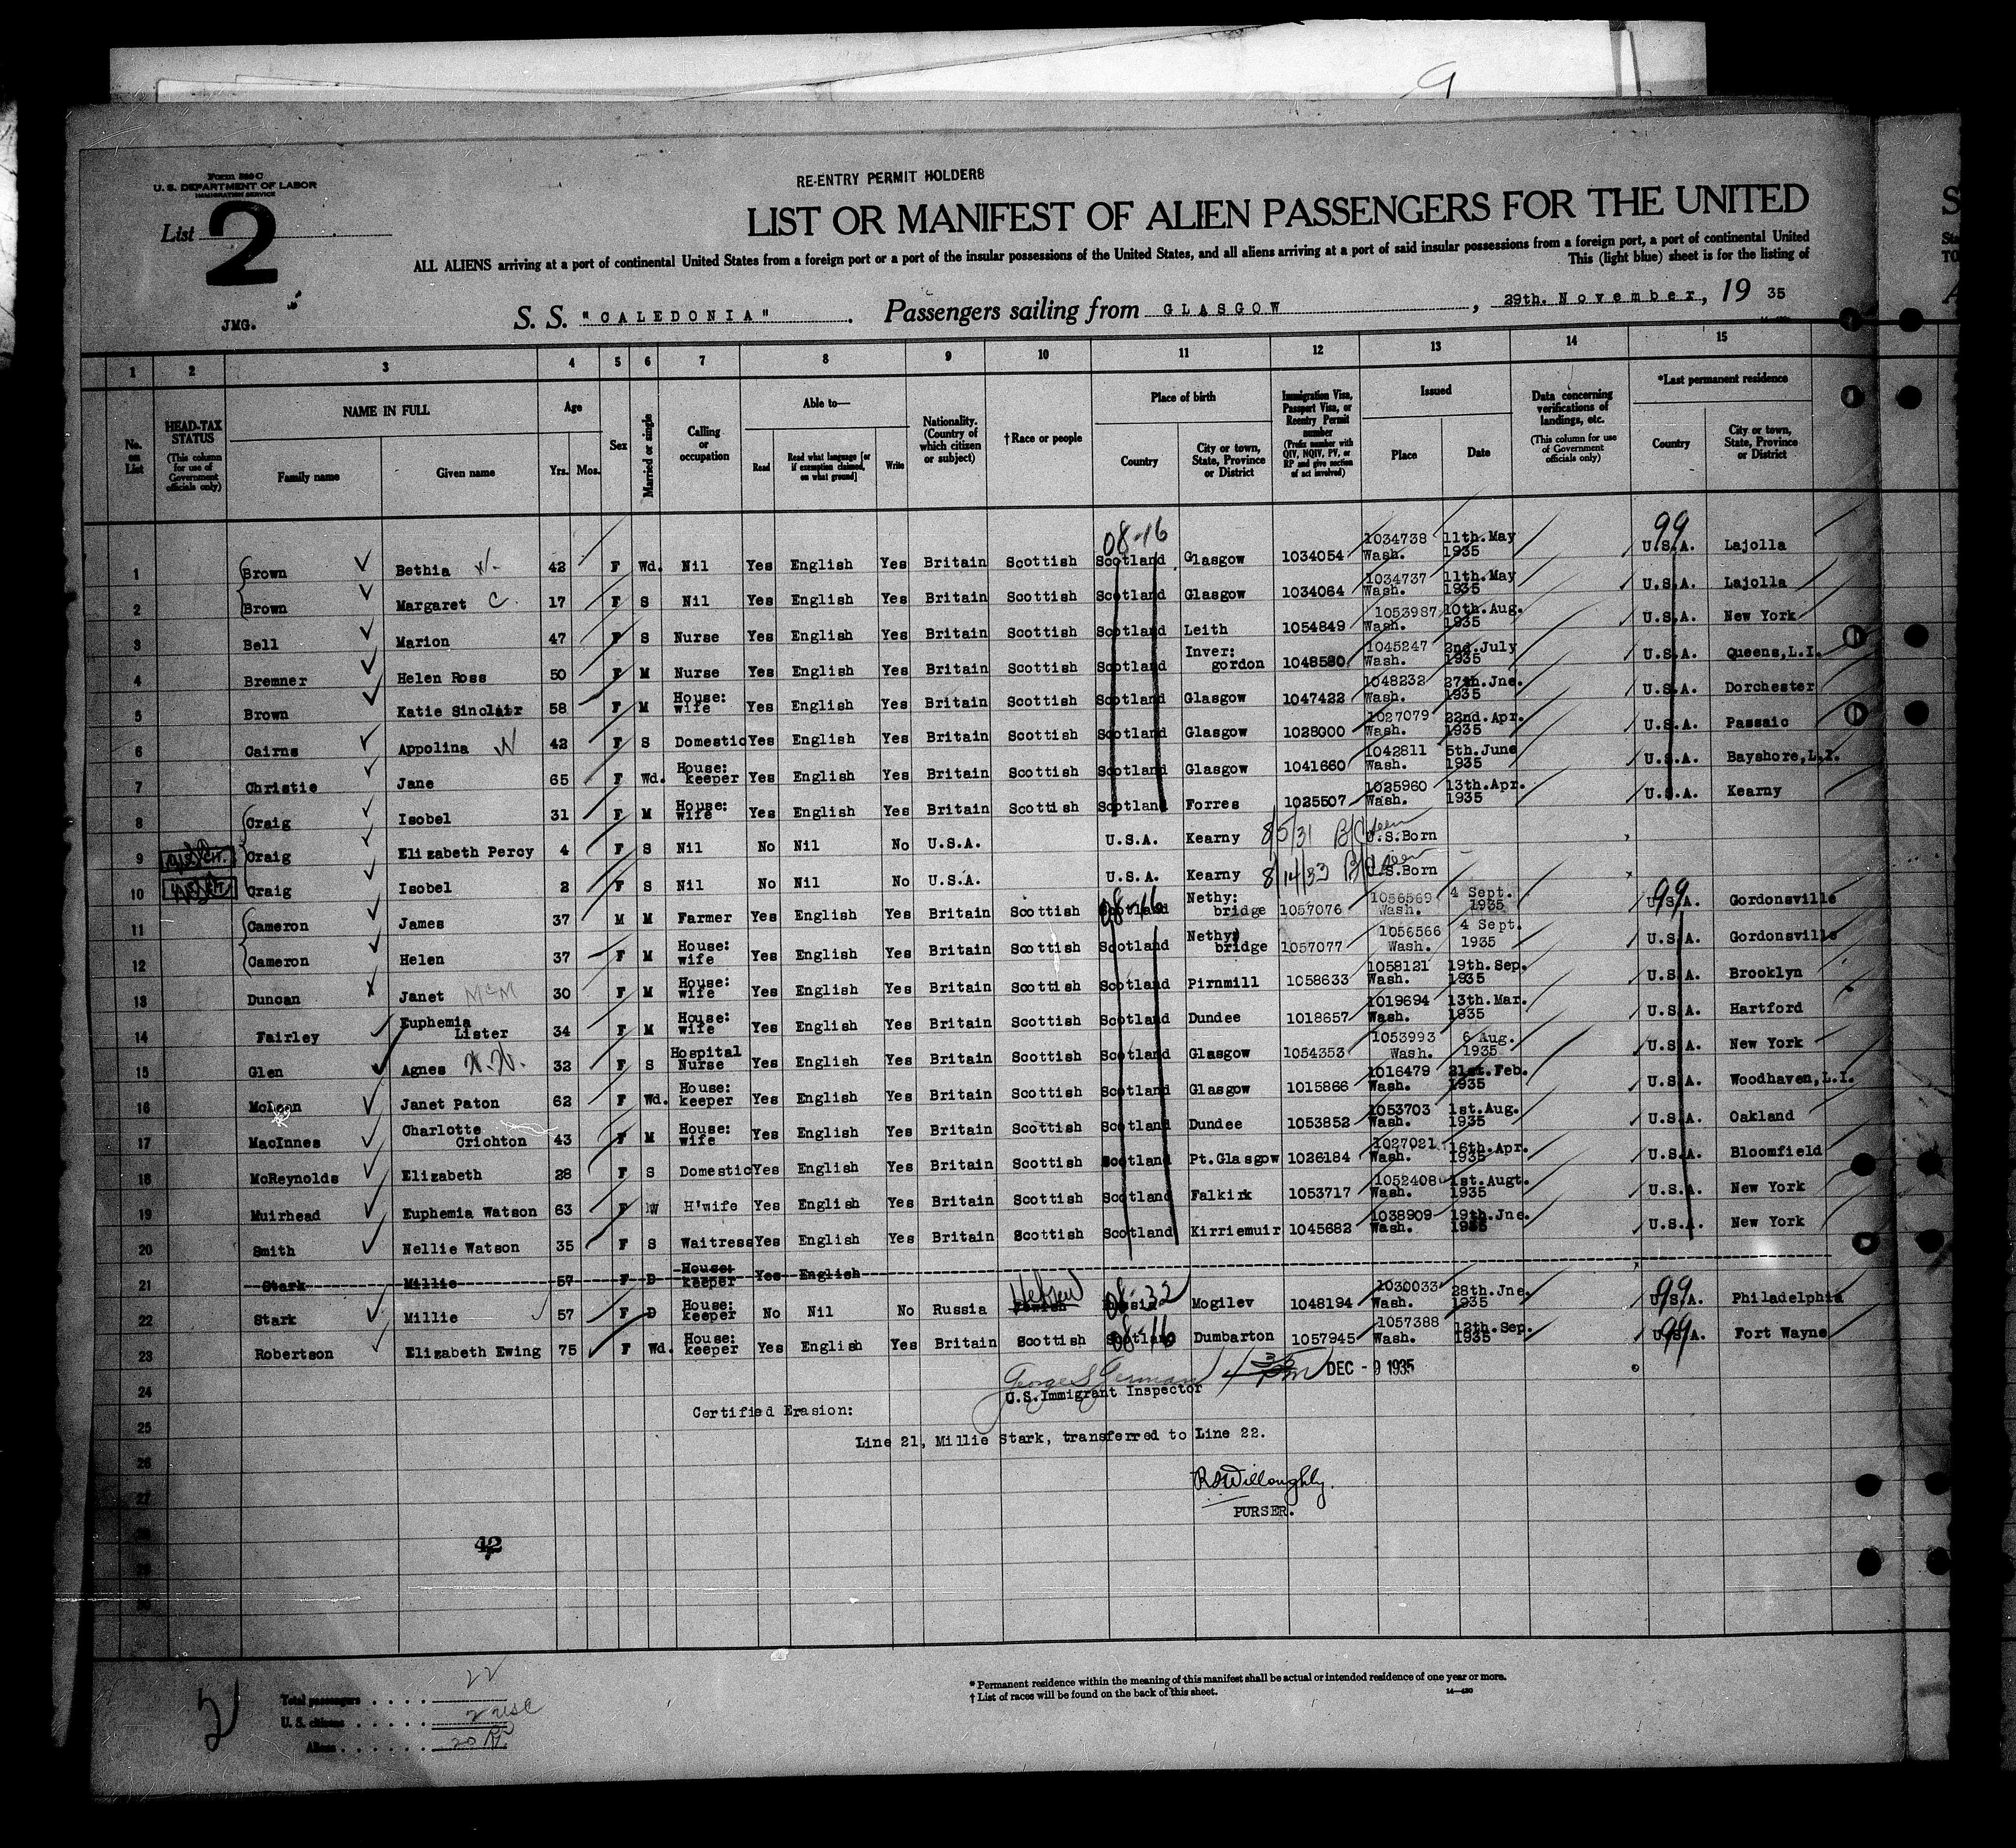 9
Form 500 C
U. S. DEPARTMENT OF LABOR
IMMIGRATION SERVICE
List 2
JMG.
RE-ENTRY PERMIT HOLDERS
LIST OR MANIFEST OF ALIEN PASSENGERS FOR THE UNITED
ALL ALIENS arriving at a port of continental United States from a foreign port or a port of the insular possessions of the United States, and all aliens arriving at a port of said insular possessions from a foreign port, a port of continental United
This (light blue) sheet is for the listing of
S. S. "CALEDONIA" . Passengers sailing from GLASGOW , 29th. November, 19 35
1 2 3 4 5 6 7 8 9 10 11 12 13 14 15
No. on List
HEAD-TAX STATUS (This column for use of Government officials only)
NAME IN FULL
Family name Given name
Age
Yrs. Mos.
Sex
Married or single
Calling or occupation
Able to—
Read Read what language [or if exemption claimed, on what ground] Write
Nationality. (Country of which citizen or subject)
†Race or people
Place of birth
Country City or town, State, Province or District
Immigration Visa, Passport Visa, or Reentry Permit number (Prefix number with QIV, NQIV, PV, or RP and give section of act involved)
Issued
Place Date
Data concerning verifications of landings, etc. (This column for use of Government officials only)
*Last permanent residence
Country City or town, State, Province or District
08-16 99
1 Brown Bethia W. 42 F Wd. Nil Yes English Yes Britain Scottish Scotland Glasgow 1034054 1034738 Wash. 11th.May 1935 U.S.A. Lajolla
2 Brown Margaret C. 17 F S Nil Yes English Yes Britain Scottish Scotland Glasgow 1034064 1034737 Wash. 11th.May 1935 U.S.A. Lajolla
3 Bell Marion 47 F S Nurse Yes English Yes Britain Scottish Scotland Leith 1054849 1053987 Wash. 10th.Aug. 1935 U.S.A. New York
4 Bremner Helen Ross 50 F M Nurse Yes English Yes Britain Scottish Scotland Inver: gordon 1048580 1045247 Wash. 2nd.July 1935 U.S.A. Queens,L.I.
5 Brown Katie Sinclair 58 F M House: wife Yes English Yes Britain Scottish Scotland Glasgow 1047422 1048232 Wash. 27th.Jne. 1935 U.S.A. Dorchester
6 Cairns Appolina W 42 F S Domestic Yes English Yes Britain Scottish Scotland Glasgow 1028000 1027079 Wash. 22nd.Apr. 1935 U.S.A. Passaic
7 Christie Jane 65 F Wd. House: keeper Yes English Yes Britain Scottish Scotland Glasgow 1041660 1042811 Wash. 5th.June 1935 U.S.A. Bayshore,L.I.
8 Craig Isobel 31 F M House: wife Yes English Yes Britain Scottish Scotland Forres 1025507 1025960 Wash. 13th.Apr. 1935 U.S.A. Kearny
9 Craig Elizabeth Percy 4 F S Nil No Nil No U.S.A. U.S.A. Kearny 8/5/31 B/C seen U.S.Born
10 Craig Isobel 2 F S Nil No Nil No U.S.A. U.S.A. Kearny 8/14/33 B/C seen U.S.Born
11 Cameron James 37 M M Farmer Yes English Yes Britain Scottish Scotland 08-16 Nethy: bridge 1057076 1056569 Wash. 4 Sept. 1935 U.S.A. 99 Gordonsville
12 Cameron Helen 37 F M House: wife Yes English Yes Britain Scottish Scotland Nethy: bridge 1057077 1056566 Wash. 4 Sept. 1935 U.S.A. Gordonsville
13 Duncan Janet McM 30 F M House: wife Yes English Yes Britain Scottish Scotland Pirnmill 1058633 1058121 Wash. 19th.Sep. 1935 U.S.A. Brooklyn
14 Fairley Euphemia Lister 34 F M House: wife Yes English Yes Britain Scottish Scotland Dundee 1018657 1019694 Wash. 13th.Mar. 1935 U.S.A. Hartford
15 Glen Agnes 32 F S Hospital Nurse Yes English Yes Britain Scottish Scotland Glasgow 1054353 1053993 Wash. 6 Aug. 1935 U.S.A. New York
16 Janet Paton 62 F Wd. House: keeper Yes English Yes Britain Scottish Scotland Glasgow 1015866 1016479 Wash. 21st.Feb. 1935 U.S.A. Woodhaven,L.I.
17 MacInnes Charlotte Crichton 43 F M House: wife Yes English Yes Britain Scottish Scotland Dundee 1053852 1053703 Wash. 1st.Aug. 1935 U.S.A. Oakland
18 McReynolds Elizabeth 28 F S Domestic Yes English Yes Britain Scottish Scotland Pt.Glasgow 1026184 1027021 Wash. 16th.Apr. 1935 U.S.A. Bloomfield
19 Muirhead Euphemia Watson 63 F W H'wife Yes English Yes Britain Scottish Scotland Falkirk 1053717 1052408 Wash. 1st.Augt. 1935 U.S.A. New York
20 Smith Nellie Watson 35 F S Waitress Yes English Yes Britain Scottish Scotland Kirriemuir 1045682 1038909 Wash. 19th.Jne. 1935 U.S.A. New York
21 Stark Millie 57 F D House: keeper Yes English
22 Stark Millie 57 F D House: keeper No Nil No Russia Jewish Hebrew Russia 08-32 Mogilev 1048194 1030033 Wash. 28th.Jne. 1935 U.S.A. 99 Philadelphia
23 Robertson Elizabeth Ewing 75 F Wd. House: keeper Yes English Yes Britain Scottish Scotland 08-16 Dumbarton 1057945 1057388 Wash. 12th.Sep. 1935 U.S.A. 99 Fort Wayne
24 DEC - 9 1935
U.S.Immigrant Inspector
25 Certified Erasion:
26 Line 21, Millie Stark, transferred to Line 22.
27 Willoughby.
PURSER.
42
2
Total passengers . . . . 22
U. S. citizens . . . . . 2 USC
Aliens . . . . . . 20 RP
* Permanent residence within the meaning of this manifest shall be actual or intended residence of one year or more.
† List of races will be found on the back of this sheet.